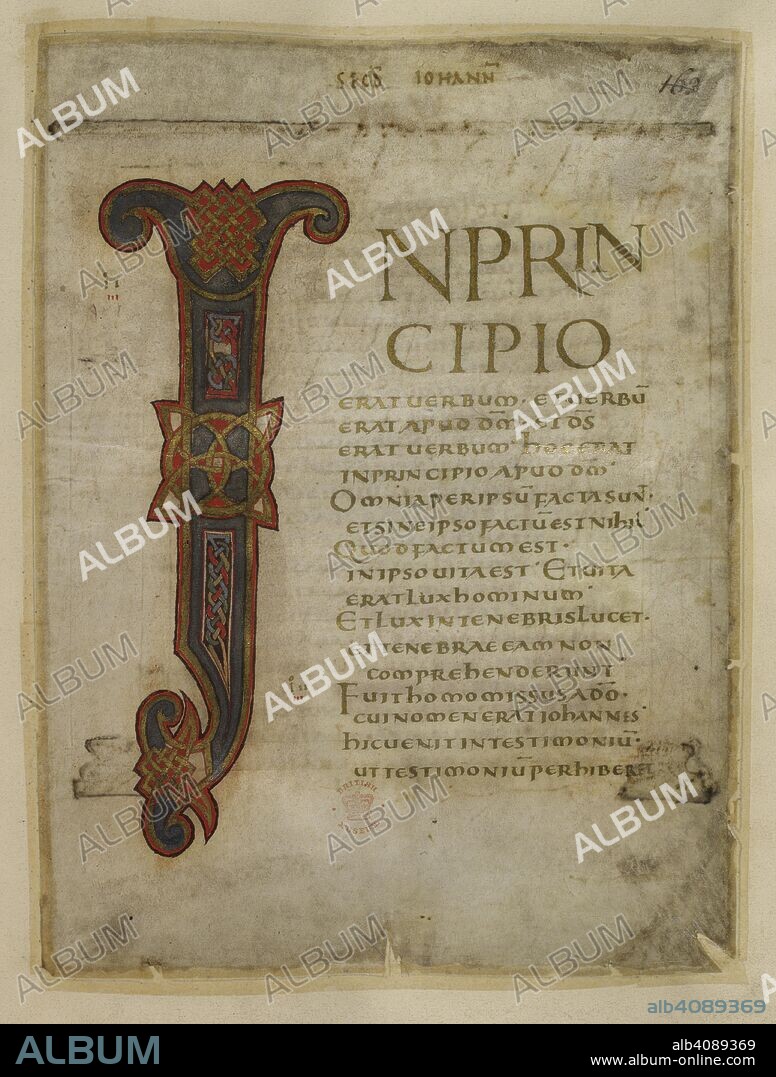 SECD IOHANN̄
162
INPRIN
CIPIO
ERATUERBUM· ETUERBŪ
ERATAPUD D̄M· ET D̄S
ERATUERBUM· HOCERAT
INPRINCIPIO APUD D̄M·
OMNIAPERIPSŪ FACTASUN̄·
ETSINEIPSO FACTŪESTNIHIL·
QUODFACTUMEST·
INIPSOUITAEST· ETUITA
ERATLUXHOMINUM·
ETLUXINTENEBRISLUCET·
ETTENEBRAEEAMNON
COMPREHENDERUNT
FUITHOMOMISSUSAD̄O·
CUINOMENERATIOHANNES
HICUENITINTESTIMONIŪ·
UTTESTIMONIŪPERHIBERET
BRITISH
MUSEUM
ALBUM
alb4089369
ALBUM
alb4089369
www.album-online.com